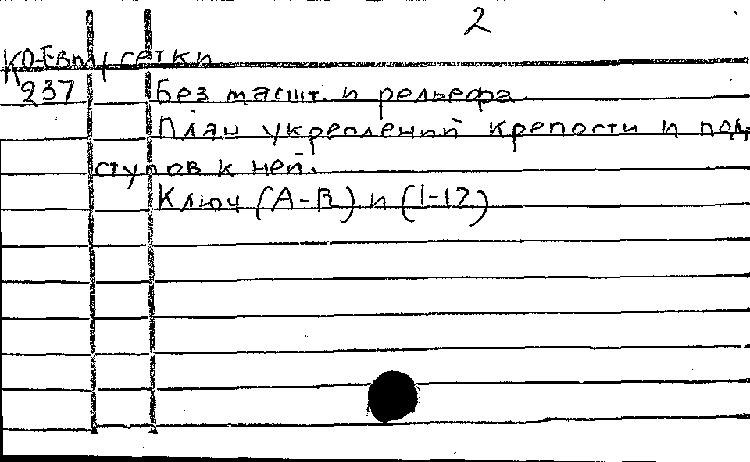 2
КО-Евп / сетки
237 Без масшт. и рельефа
План укреплений крепости и под
ступов к ней.
Ключ (А-В) и (1-12)